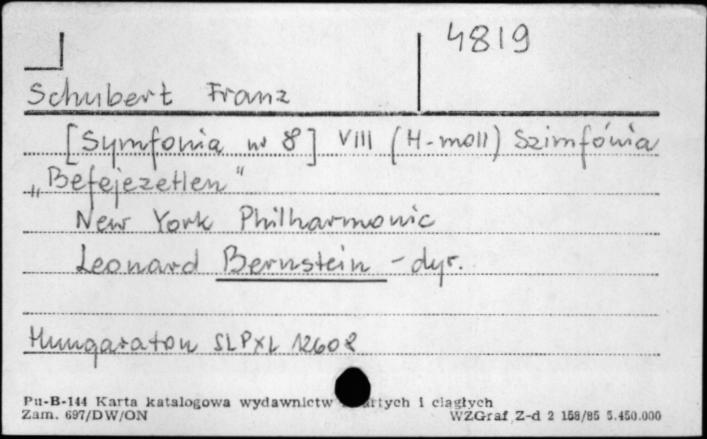 4819
Schubert Franz
[Symfonia nr 8] VIII (H-moll) Szimfónia
„Befejezetlen"
New York Philharmonic
Leonard Bernstein - dyr.
Hungaroton SLPXL 12608
Pu-B-144 Karta katalogowa wydawnictw zwartych i ciągłych
Zam. 697/DW/ON WZGraf Z-d 2 158/85 5.450.000